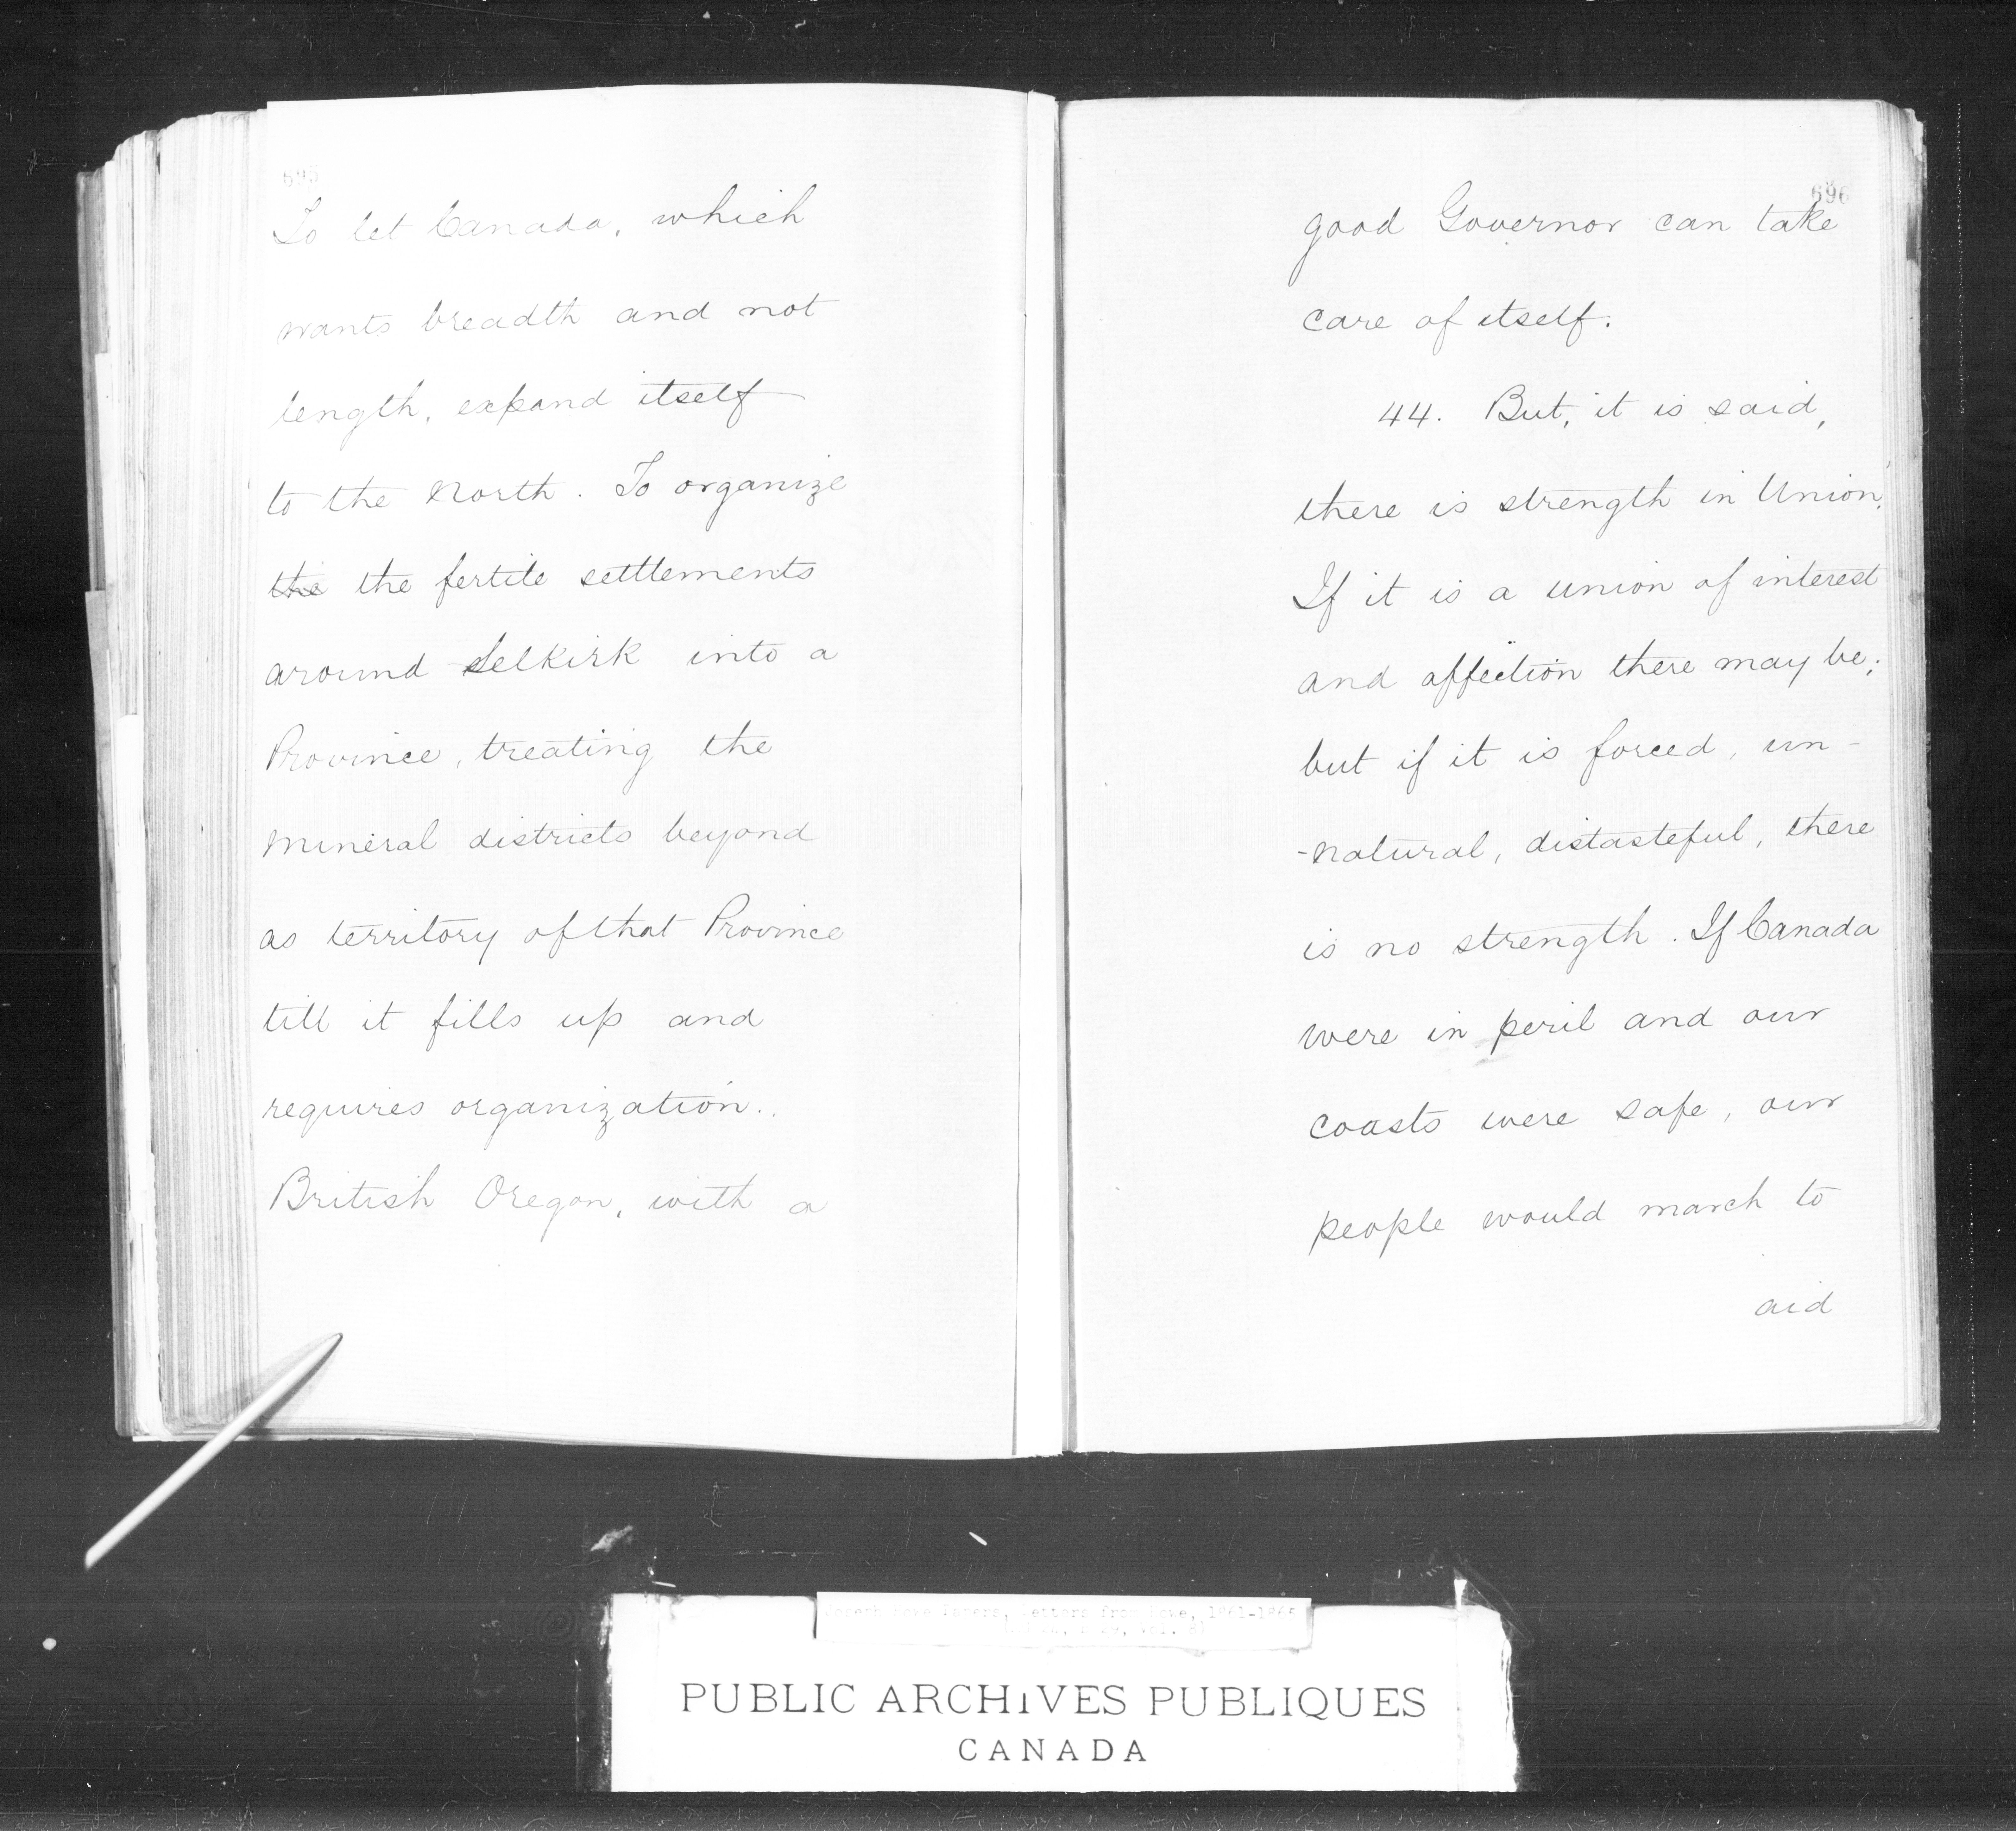 695
To let Canada, which
wants breadth and not
length, expand itself
to the North. To organize
the the fertile settlements
around Selkirk into a
Province, treating the
mineral districts beyond
as territory of that Province
till it fills up and
requires organization..
British Oregon, with a
696
good Governor can take
care of itself.
44. But, it is said,
there is strength in Union.
If it is a union of interest
and affection there may be;
but if it is forced, un-
-natural, distasteful, there
is no strength. If Canada
were in peril and our
coasts were safe, our
people would march to
aid
Joseph Howe Papers, Letters from Howe, 1861-1865
PUBLIC ARCHIVES PUBLIQUES
CANADA